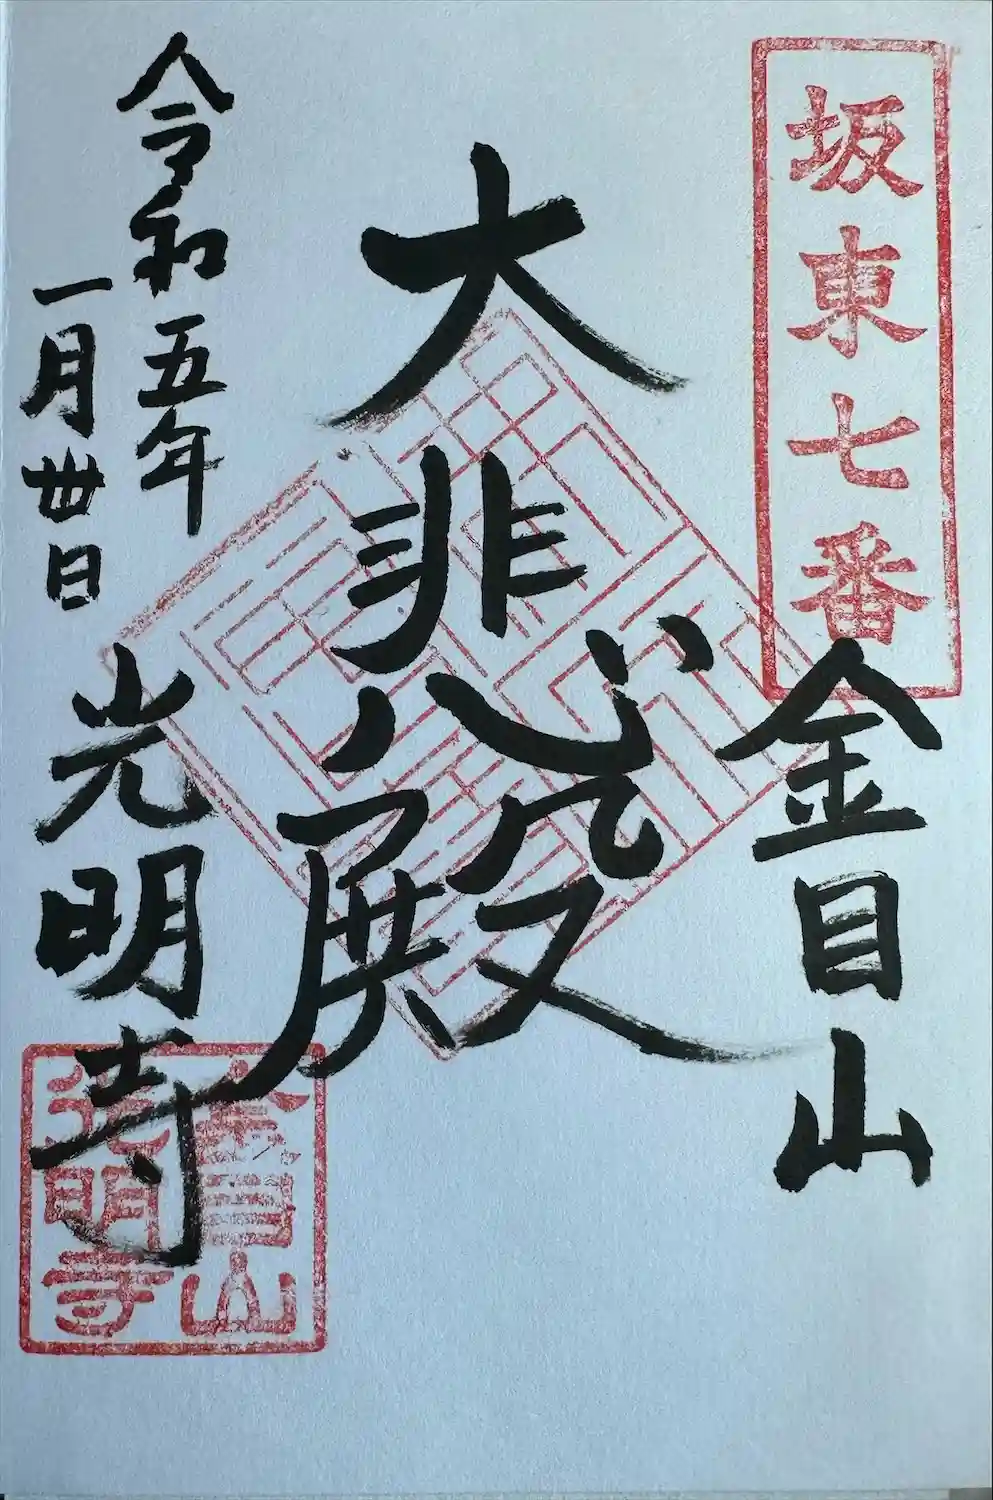 坂東七番
金目山
大悲殿
令和五年
一月卅日
光明寺
金目山
光明寺